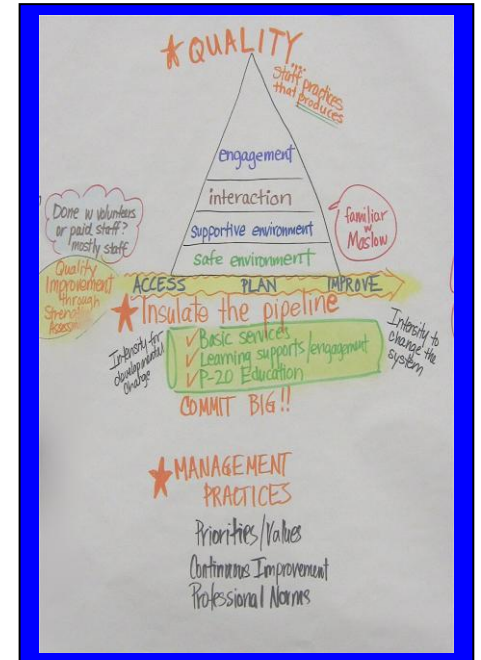 QUALITY
Staff practices
that produces
engagement
interaction
supportive environment
safe environment
Done w volunteers
or paid staff?
mostly staff
familiar
w
Maslow
Quality
Improvement
through
ACCESS PLAN IMPROVE
Insulate the pipeline
Intensity for
developmental
change
✓Basic services
✓Learning supports/engagement
✓P-20 Education
Intensity to
change the
system
COMMIT BIG!!
MANAGEMENT
PRACTICES
Priorities/Values
Continuous Improvement
Professional Norms